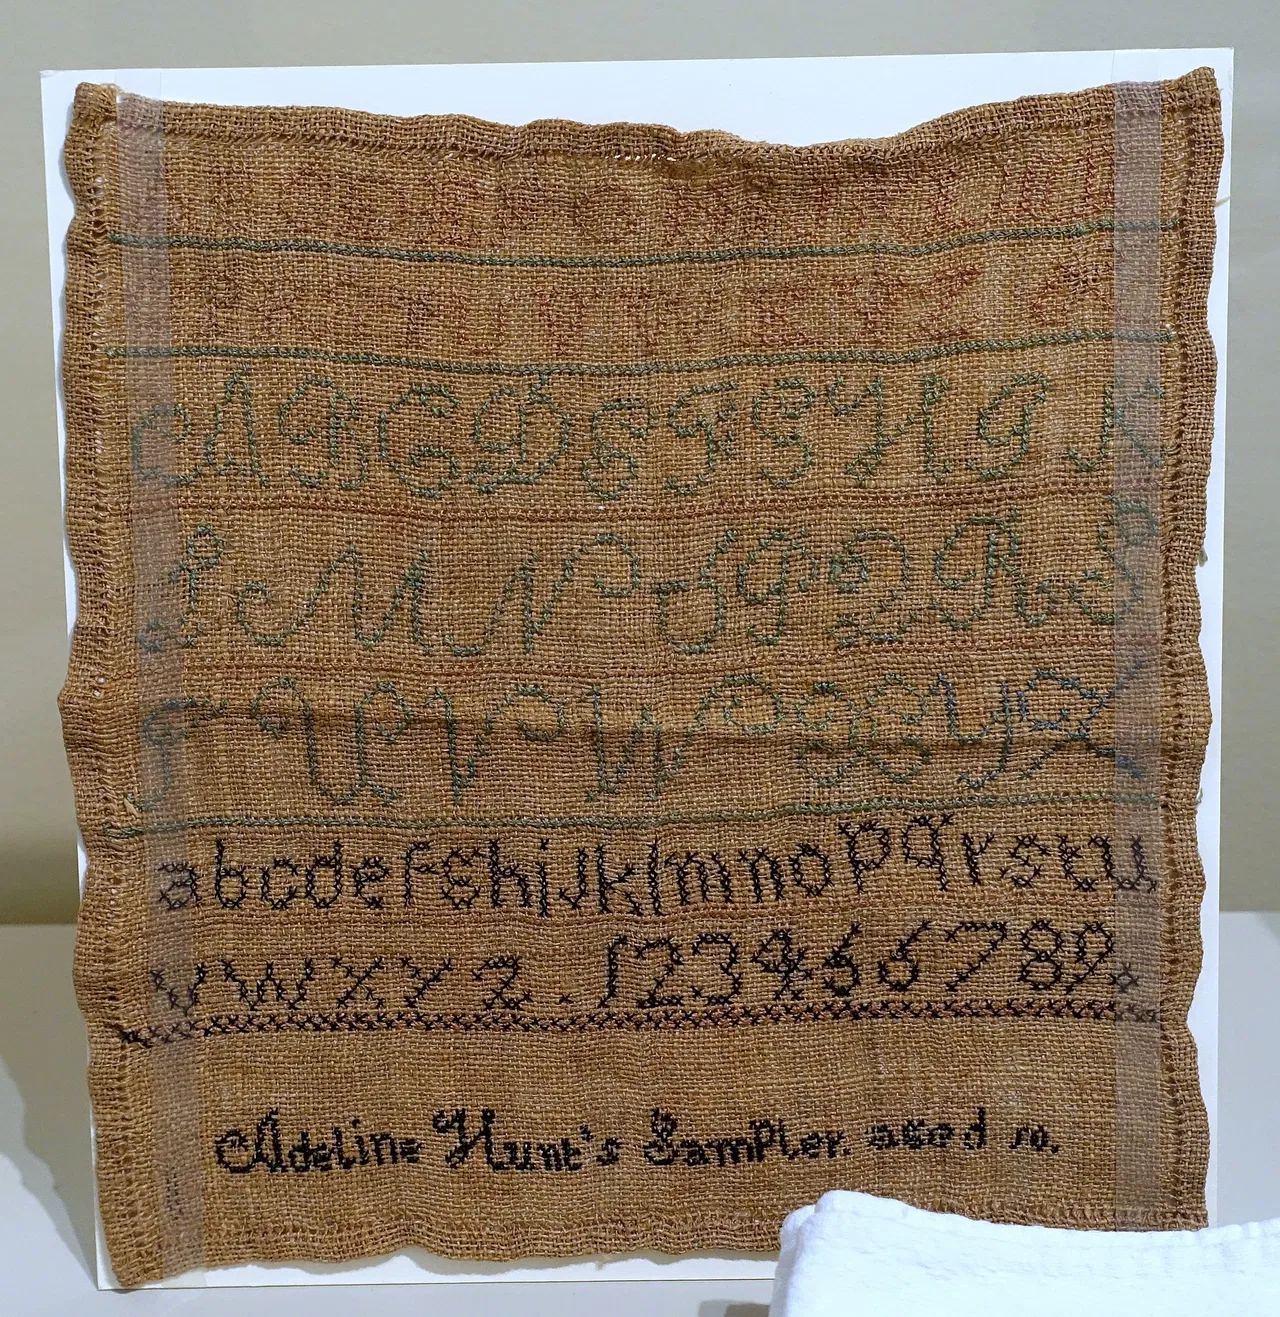 X Y Z &
A B C D E F G H J K
L M N O P Q R S
T U V W X Y Z
a b c d e f g h i j k l m n o p q r s t u
v w x y z . 1 2 3 4 5 6 7 8 9.
Adeline Hunt's Sampler. aged 10.